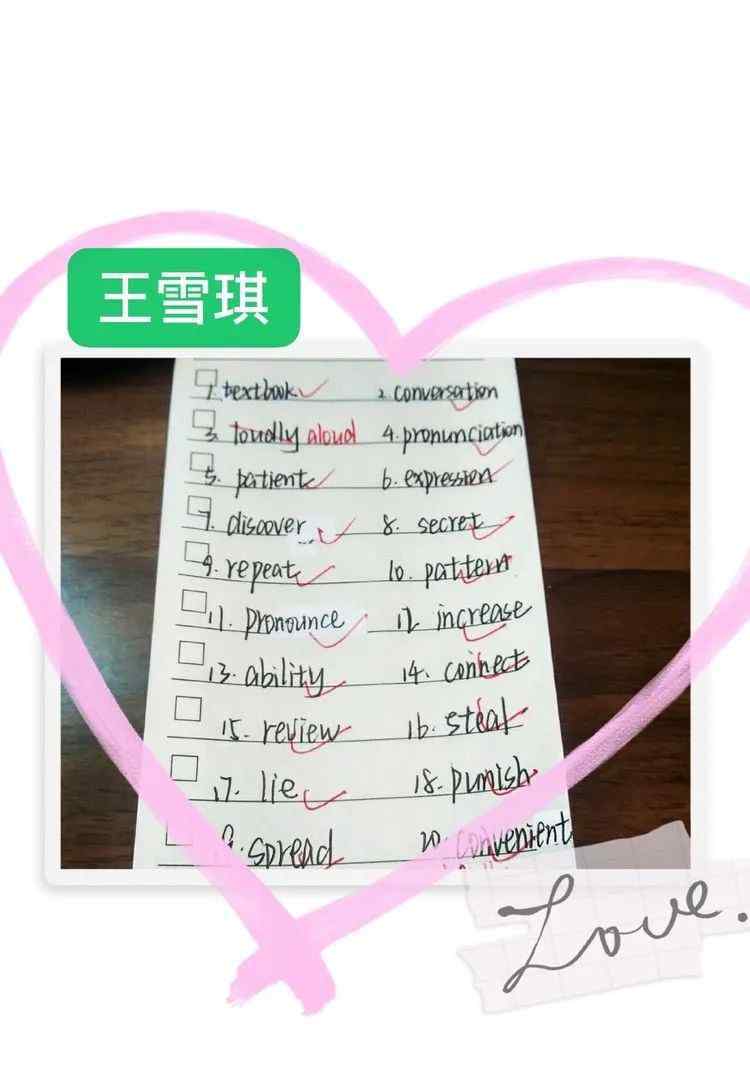 王雪琪
1. textbook 2. conversation
3. loudly aloud 4. pronunciation
5. patient 6. expression
7. discover 8. secret
9. repeat 10. pattern
11. pronounce 12. increase
13. ability 14. connect
15. review 16. steal
17. lie 18. punish
19. spread 20. convenient
Love.